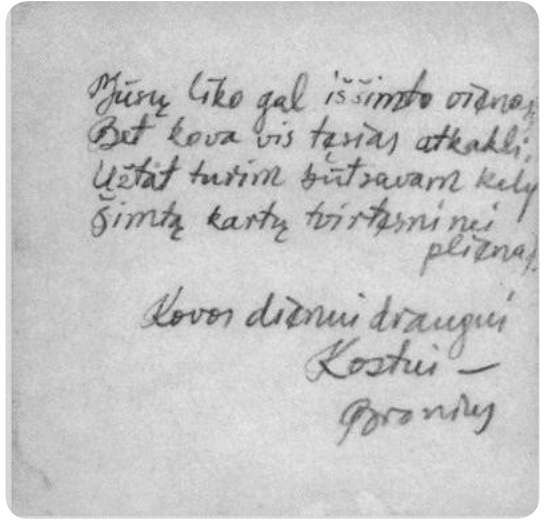 Mūsų liko gal iš šimto vienas,
Bet kova vis tęsias atkakli,
Užtat turim būt savam kely
Šimtą kartų tvirtesni nei
plienas.
Kovos dienų draugui
Kostui —
Bronius